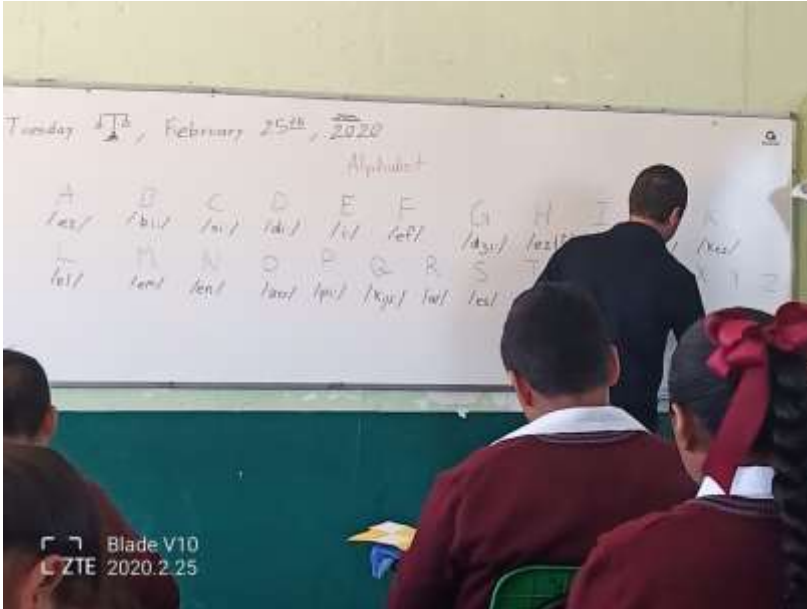 Tuesday, February 25th, 2020
Alphabet
A B C D E F G H I K
/ei/ /bi:/ /si:/ /di:/ /i:/ /ef/ /dʒi:/ /kei/
L M N O P Q R S T X Y Z
/el/ /em/ /en/ /pi:/ /kju:/ /es/
Blade V10
ZTE 2020.2.25